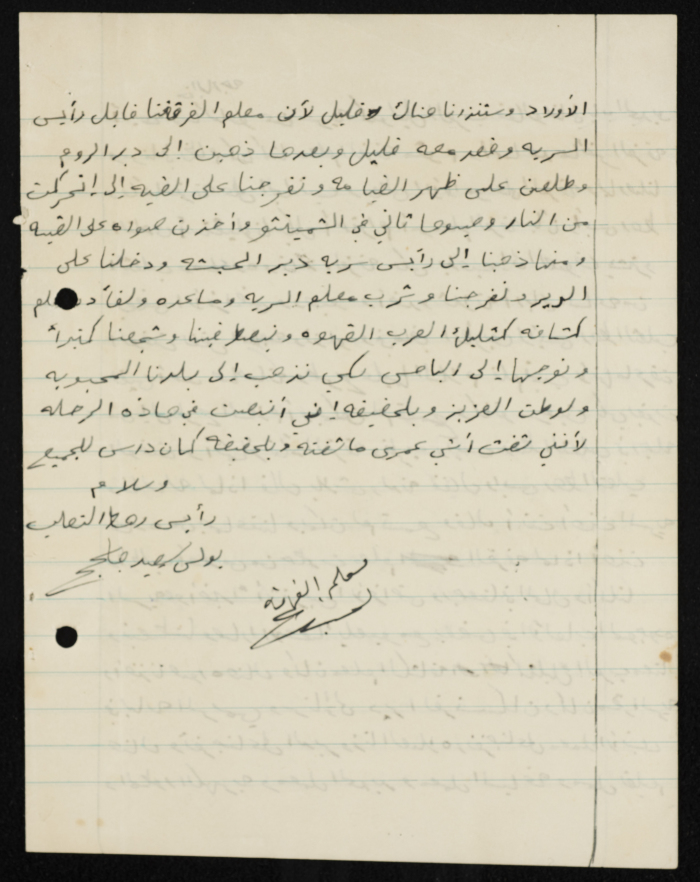 الأولاد وستنزرنا هناك قليل لأن معلم الفرقة قابل رأيس
السريه وقعد معه قليل وبعدها ذهبن إلى دير الروم
وطلعن على ظهر القيامه وتفرجنا على القبه إلى إتحركت
من النار وصبوها تاني في الشمينتو وأخذن صواره على القبه
ومنها ذهبنا إلى رأيس سريه دير الحبشه ودخلنا على
الدير وتفرجنا وشرب معلم السريه ومساعده
كشافه كتقليد العرب القهوه
وتوجهنا إلى الباص لكي نذهب إلى بلدنا المحبوبه
ولوطن العزيز وبلحقيقه إنني أنبصت في هاذه الرحله
لأنني شفت أشي عمري ما شفته وبلحقيقه كمان درس للجميع
وسلام
رأيس رهط التعلب
بولس سعيد
معلم الفرقة